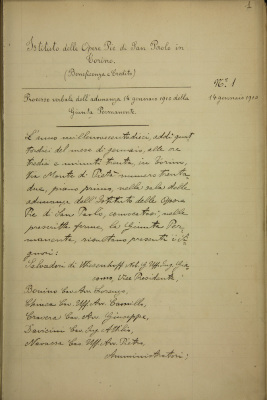 1
Istituto delle Opere Pie di San Paolo in
Torino.
(Beneficenza e Credito)
Processo verbale dell'adunanza 14 gennaio 1910 della
Giunta Permanente.
N.° 1
14 gennaio 1910
L'anno millenovecentodieci, addì quat
tordici del mese di gennaio, alle ore
e minuti trenta in Torino,
Via Monte di Pietà numero trenta
due, piano primo, nella sala delle
adunanze dell'Istituto delle Opere
Pie di San Paolo, convocatasi nelle
prescritte forme, la Giunta Per
manente, risultano presenti i Si
gnori:
Salvadori di Wiesenhoff Nob. Uff. Ing. Gia
como, Vice Presidente;
Bonino Cav. Avv. Lorenzo,
Cav. Uff. Avv. Camillo,
Cravera Cav. Avv. Giuseppe,
Cav. Ing. Attilio,
Navassa Cav. Uff. Avv. Pietro
Amministratori;